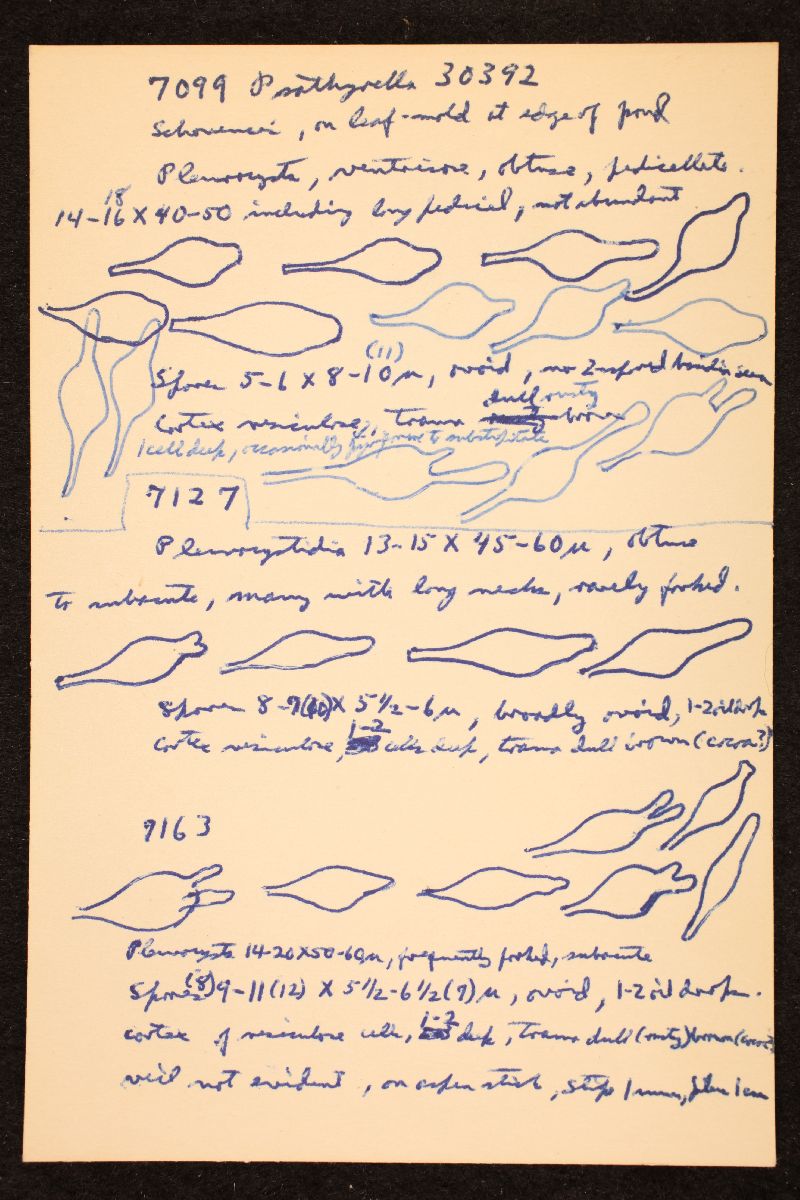 7099 Psathyrella 30392
on leaf-mold at edge of pond
Pleurocysts, ventricose, obtuse, pedicellate.
18
14-16 X 40-50 including long pedicel, not abundant
(11)
Spores 5-6 X 8-10 µ, ovoid, no 2-spored basidia seen
dull rusty
Cortex vesiculose, trama brown
1 cell deep, occasionally
7127
Pleurocystidia 13-15 X 45-60 µ, obtuse
to subacute, many with long necks, rarely forked.
Spores 8-9(10) X 5 1/2-6 µ, broadly ovoid, 1-2 oil drops
1-2
cortex vesiculose, cells deep, trama dull brown (cocoa?)
9163
Pleurocysts 14-20 X 50-60 µ, frequently forked, subacute
Spores (8)9-11(12) X 5 1/2-6 1/2(7) µ, ovoid, 1-2 oil drops.
1-2
cortex of vesiculose cells, deep, trama dull (rusty) brown (cocoa?)
veil not evident, on aspen stick, stipe 1 mm, pileus 1 cm